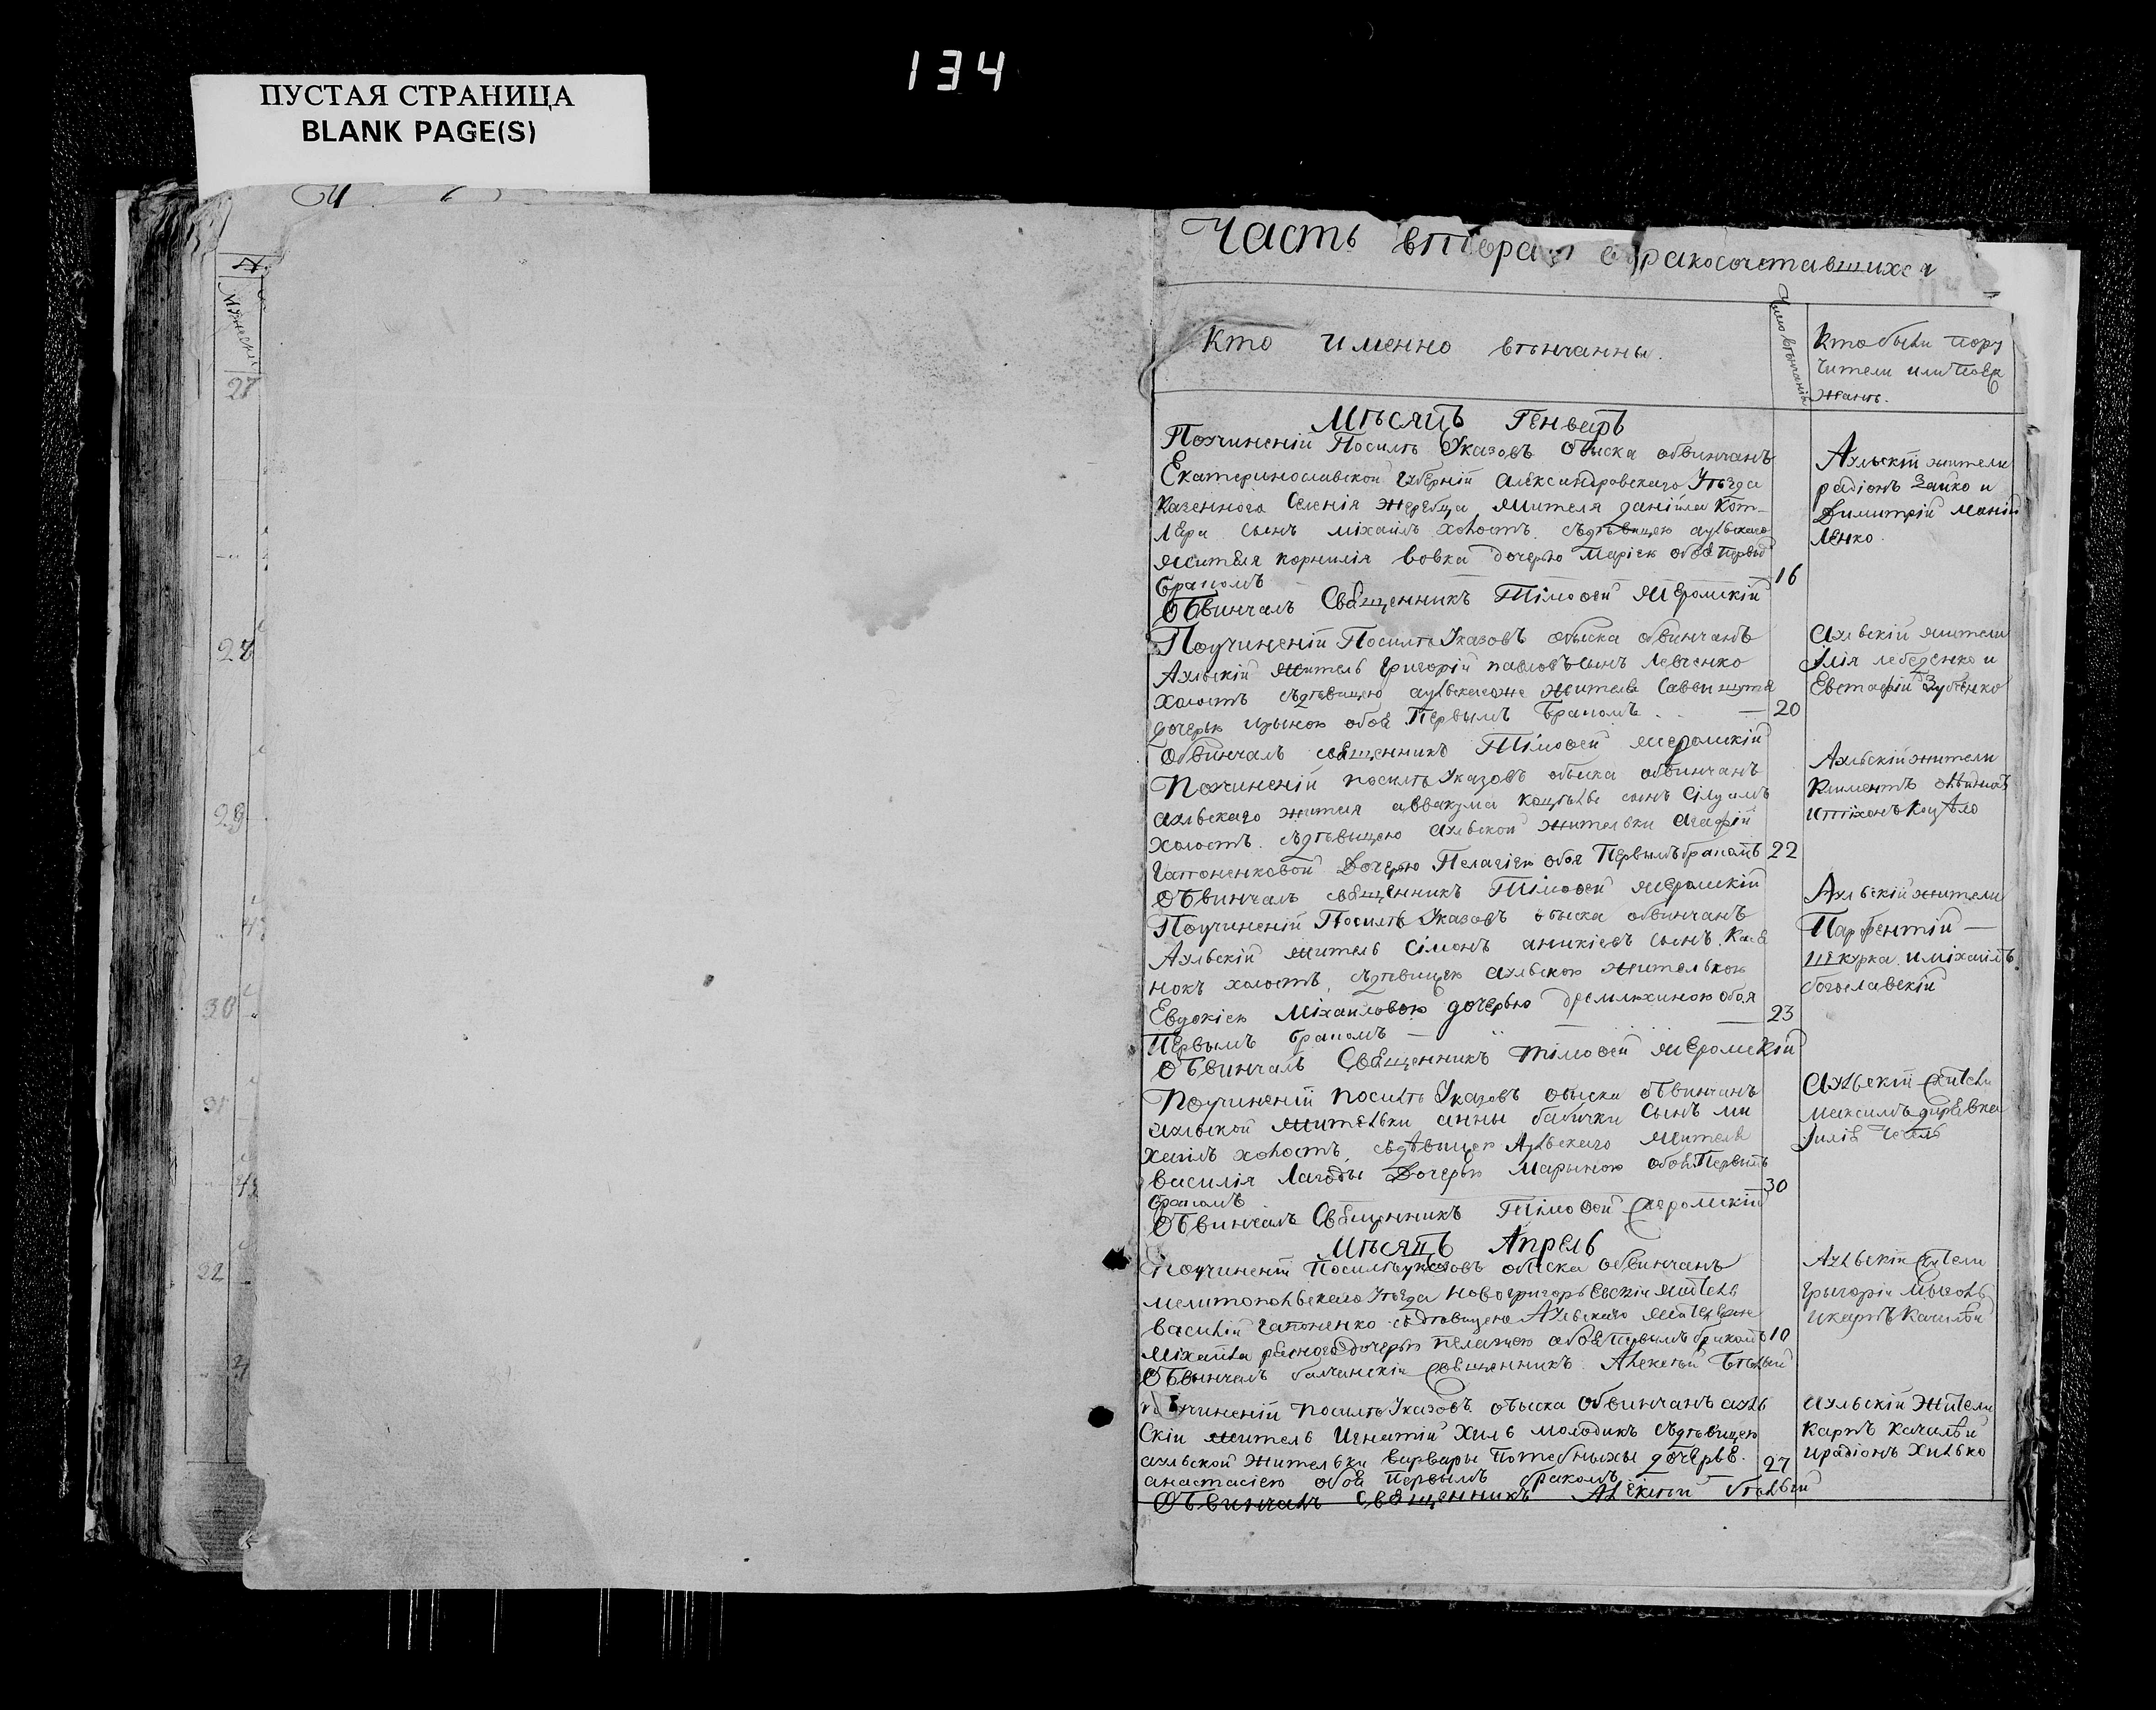 134
ПУСТАЯ СТРАНИЦА
BLANK PAGE(S)
27
28
29
30
31
32
Часть вторая о бракосочетавшихся
Кто именно вѣнчанны.
Число вѣнчанія
Кто были пору
чители или поез
жанѣ.
Мѣсяцъ Генваръ
Поучиненій Посилѣ Указовъ обыска обвинчанъ
Екатеринославской Губерній Александровскаго Уѣзда
Казенного Селенія Жеребца жителя даніила Кот-
лера сынъ міхаилъ холостъ съдѣвицею аулъскаго
жителя корнилія вовка дочерью Маріею обоѣ первымъ
бракомъ 16
Обвинчалъ Священникъ Тімоѳей Жеромскій
Аулъскій жители
радіонъ Заико и
Димитрій Маній
ленко.
Поучиненій Посилѣ Указовъ обыска обвинчанъ
Аулъскій житель Григорій павловъ сынъ Левченко
холостъ съдѣвицею аулъскагоже жителя Саввы
дочерью Ирыною обоѣ Первымъ бракомъ 20
Обвинчалъ священникъ Тімоѳей Жеромскій
Аулъскій жители
Ілія лебеденко и
Евстафій Зубенко
Поучиненій посилѣ Указовъ обыска обвинчанъ
аулъскаго жителя аввакума сынъ Сілуанъ
холостъ съдѣвицею аулъской жителъки агафій
Гапоненковой Дочерью Пелагіею обоя Первымъ бракомъ 22
Обвинчалъ священникъ Тімоѳей Жеромскій
Аулъскій жители
Климентъ
итіханъ
Поучиненій Посилѣ Указовъ обыска обвинчанъ
Аулъскій житель Сімонъ аникіевъ сынъ
нокъ холостъ, съдѣвицею аулъскою жителькою
Евдокіею Міхаиловою дочерью дремлюхиною обоя
Первымъ бракомъ 23
Обвинчалъ Священникъ тімоѳей Жеромскій
Аулъскій жители
Парфентій
шекурка иміхаилъ
богославскій
Поучиненій посилѣ Указовъ обыска обвинчанъ
аулъской жителъки анны бабички сынъ ми
хаилъ холостъ, съдѣвицею Аулъскаго жителя
василія Лагоды Дочерью Марыною обоѣ Первымъ
бракомъ 30
Обвинчалъ Священникъ Тімоѳей Жеромскій
Аулъскій жители
максимъ
Мѣсяцъ Апрель
поучиненій Посилѣ указовъ обыска обвинчанъ
мелитополъскаго Уѣзда новогригоръевскій житель
василій Гапоненко съдѣвицею Аулъскаго жителя
Міхаила дочерью пелагіею обоѣ первымъ бракомъ 10
Обвинчалъ балчанскій священникъ Алексѣй Бѣлый
Аулъскій жители
Грыгорій
икарпъ Качилый
поучиненій посилѣ Указовъ обыска обвинчанъ аулъ
скій житель Игнатій Хилъ молодикъ съдѣвицею
аулъской жителъки варвары дочерью.
анастасіею обоѣ Первымъ бракомъ 27
Обвинчалъ священникъ Алексѣй Бѣлый
Аулъскій жители
карпъ Качилый
ирадіонъ Хилько